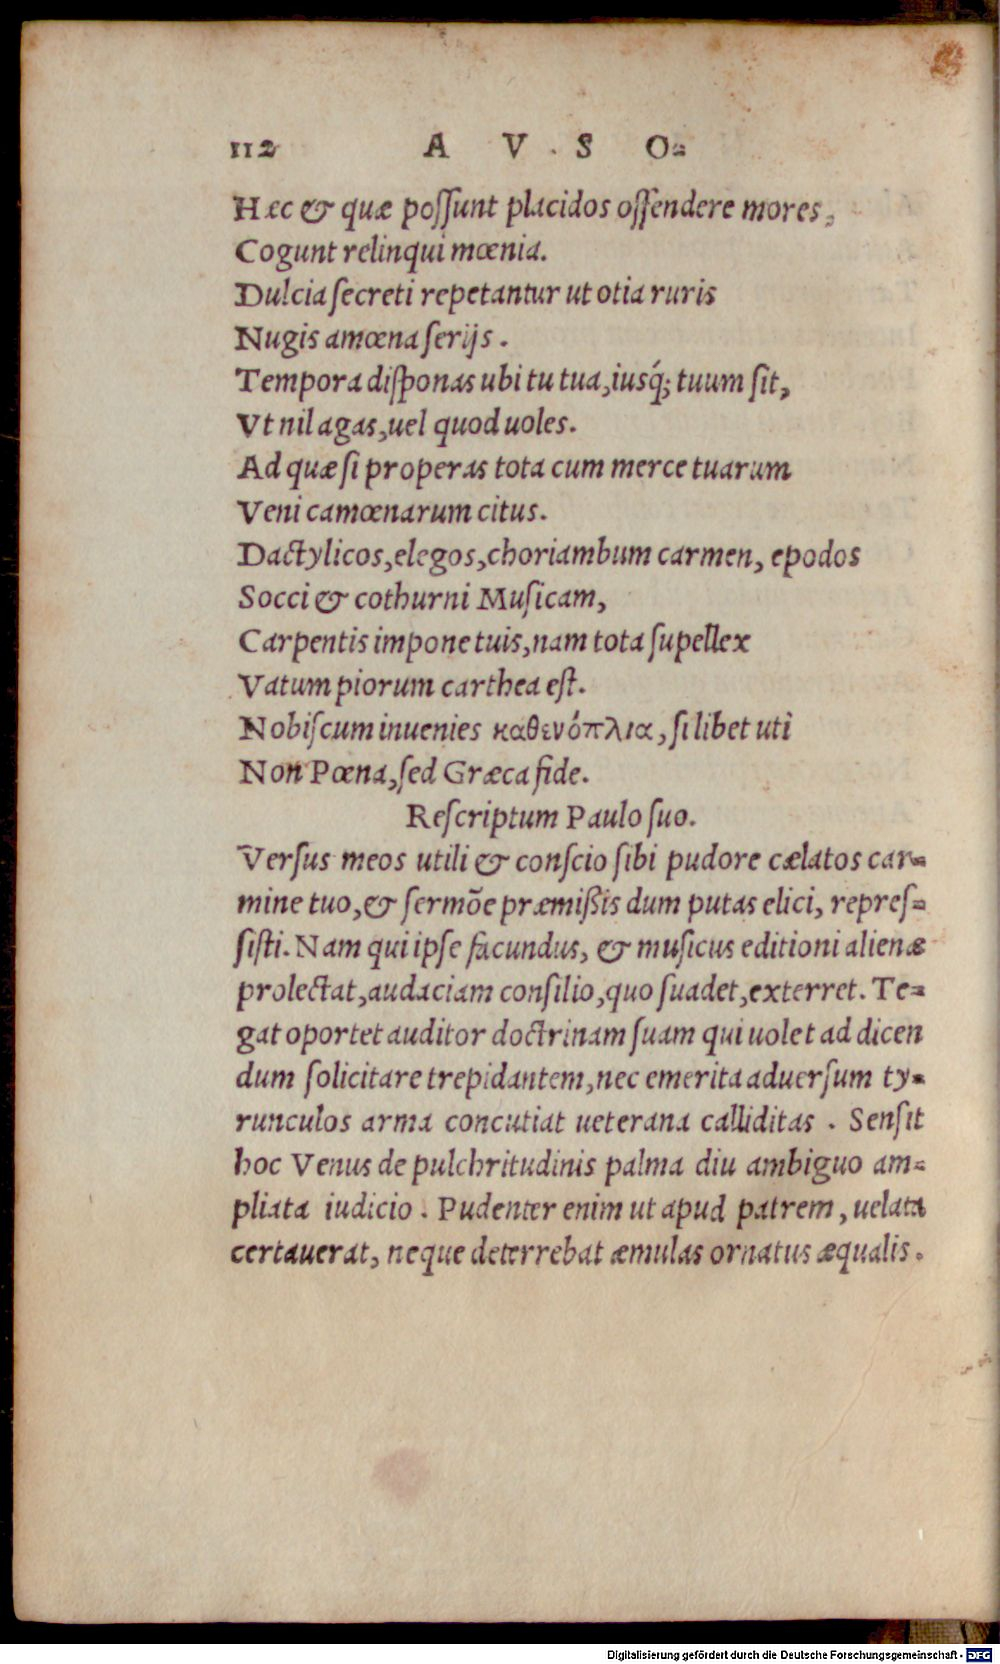 112 A V S O-
Hæc & quæ poſſunt placidos offendere mores,
Cogunt relinqui mœnia.
Dulcia ſecreti repetantur ut otia ruris
Nugis amœna ſerijs.
Tempora diſponas ubi tu tua, iusq́; tuum ſit,
Vt nil agas, uel quod uoles.
Ad quæ ſi properas tota cum merce tuarum
Veni camœnarum citus.
Dactylicos, elegos, choriambum carmen, epodos
Socci & cothurni Muſicam,
Carpentis impone tuis, nam tota ſupellex
Vatum piorum carthea eſt.
Nobiſcum inuenies καθενόπλια, ſi libet uti
Non Pœna, ſed Græca fide.
Reſcriptum Paulo ſuo.
Verſus meos utili & conſcio ſibi pudore cælatos car-
mine tuo, & ſermõe præmiſsis dum putas elici, repreſ-
ſiſti. Nam qui ipſe facundus, & muſicus editioni alienæ
prolectat, audaciam conſilio, quo ſuadet, exterret. Te-
gat oportet auditor doctrinam ſuam qui uolet ad dicen
dum ſolicitare trepidantem, nec emerita aduerſum ty-
runculos arma concutiat ueterana calliditas. Senſit
hoc Venus de pulchritudinis palma diu ambiguo am-
pliata iudicio. Pudenter enim ut apud patrem, uelata
certauerat, neque deterrebat æmulas ornatus æqualis.
Digitalisierung gefördert durch die Deutsche Forschungsgemeinschaft - DFG